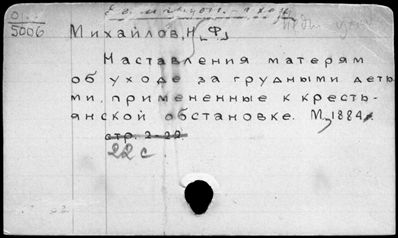 5006
Михайлов, Н. Ф.
Наставления матерям
об уходе за грудными деть-
ми, применённые к кресть-
янской обстановке. М, 1884.
стр. 2-22
22 с.